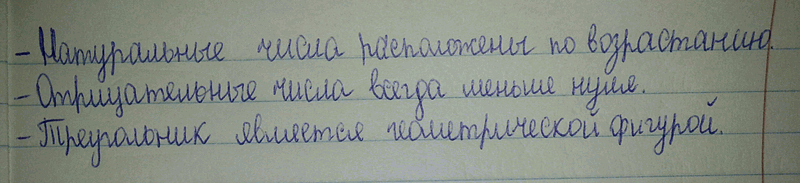 - Натуральные числа расположены по возрастанию.
- Отрицательные числа всегда меньше нуля.
- Треугольник является геометрической фигурой.